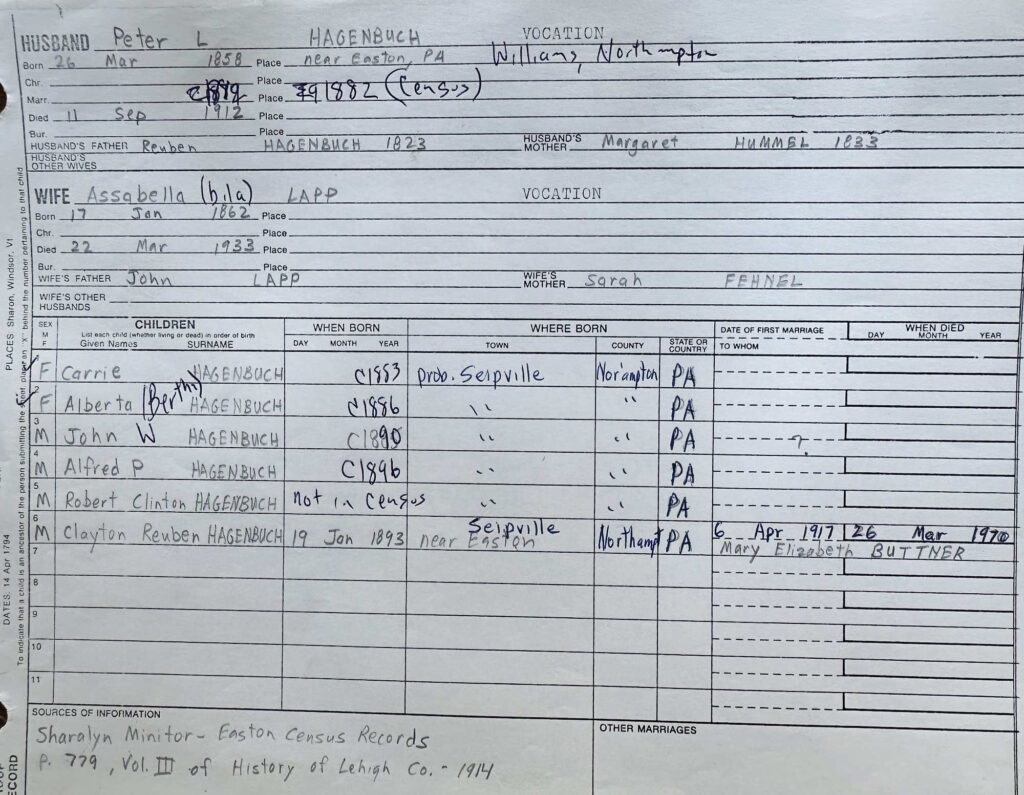 HUSBAND Peter L HAGENBUCH VOCATION
Born 26 Mar 1858 Place near Easton, PA Williams, Northampton
Chr. Place
Marr. Place 1882 (Census)
Died 11 Sep 1912 Place
Bur. Place
HUSBAND'S FATHER Reuben HAGENBUCH 1823 HUSBAND'S MOTHER Margaret HUMMEL 1833
HUSBAND'S OTHER WIVES
WIFE Assabella (bila) LAPP VOCATION
Born 17 Jan 1862 Place
Chr. Place
Died 22 Mar 1933 Place
Bur. Place
WIFE'S FATHER John LAPP WIFE'S MOTHER Sarah FEHNEL
WIFE'S OTHER HUSBANDS
SEX M F CHILDREN WHEN BORN WHERE BORN DATE OF FIRST MARRIAGE WHEN DIED
List each child (whether living or dead) in order of birth
Given Names SURNAME DAY MONTH YEAR TOWN COUNTY STATE OR COUNTRY TO WHOM DAY MONTH YEAR
F Carrie HAGENBUCH C1883 prob. Seipville Nor'ampton PA
2 F Alberta (Bertha) HAGENBUCH C1886 " " PA
3 M John W HAGENBUCH C1890 " " PA ?
4 M Alfred P HAGENBUCH C1896 " " PA
5 M Robert Clinton HAGENBUCH not in census " " PA
6 M Clayton Reuben HAGENBUCH 19 Jan 1893 Seipville near Easton Northampt PA 6 Apr 1917 26 Mar 1970
7 Mary Elizabeth BUTTNER
8
9
10
11
SOURCES OF INFORMATION
Sharalyn Minitor - Easton Census Records
p. 779, Vol. III of History of Lehigh Co. - 1914
OTHER MARRIAGES
PLACES: Sharon, Windsor, VT
DATES: 14 Apr 1794
To indicate that a child is an ancestor of the person submitting the sheet, place an "X" behind the number pertaining to that child